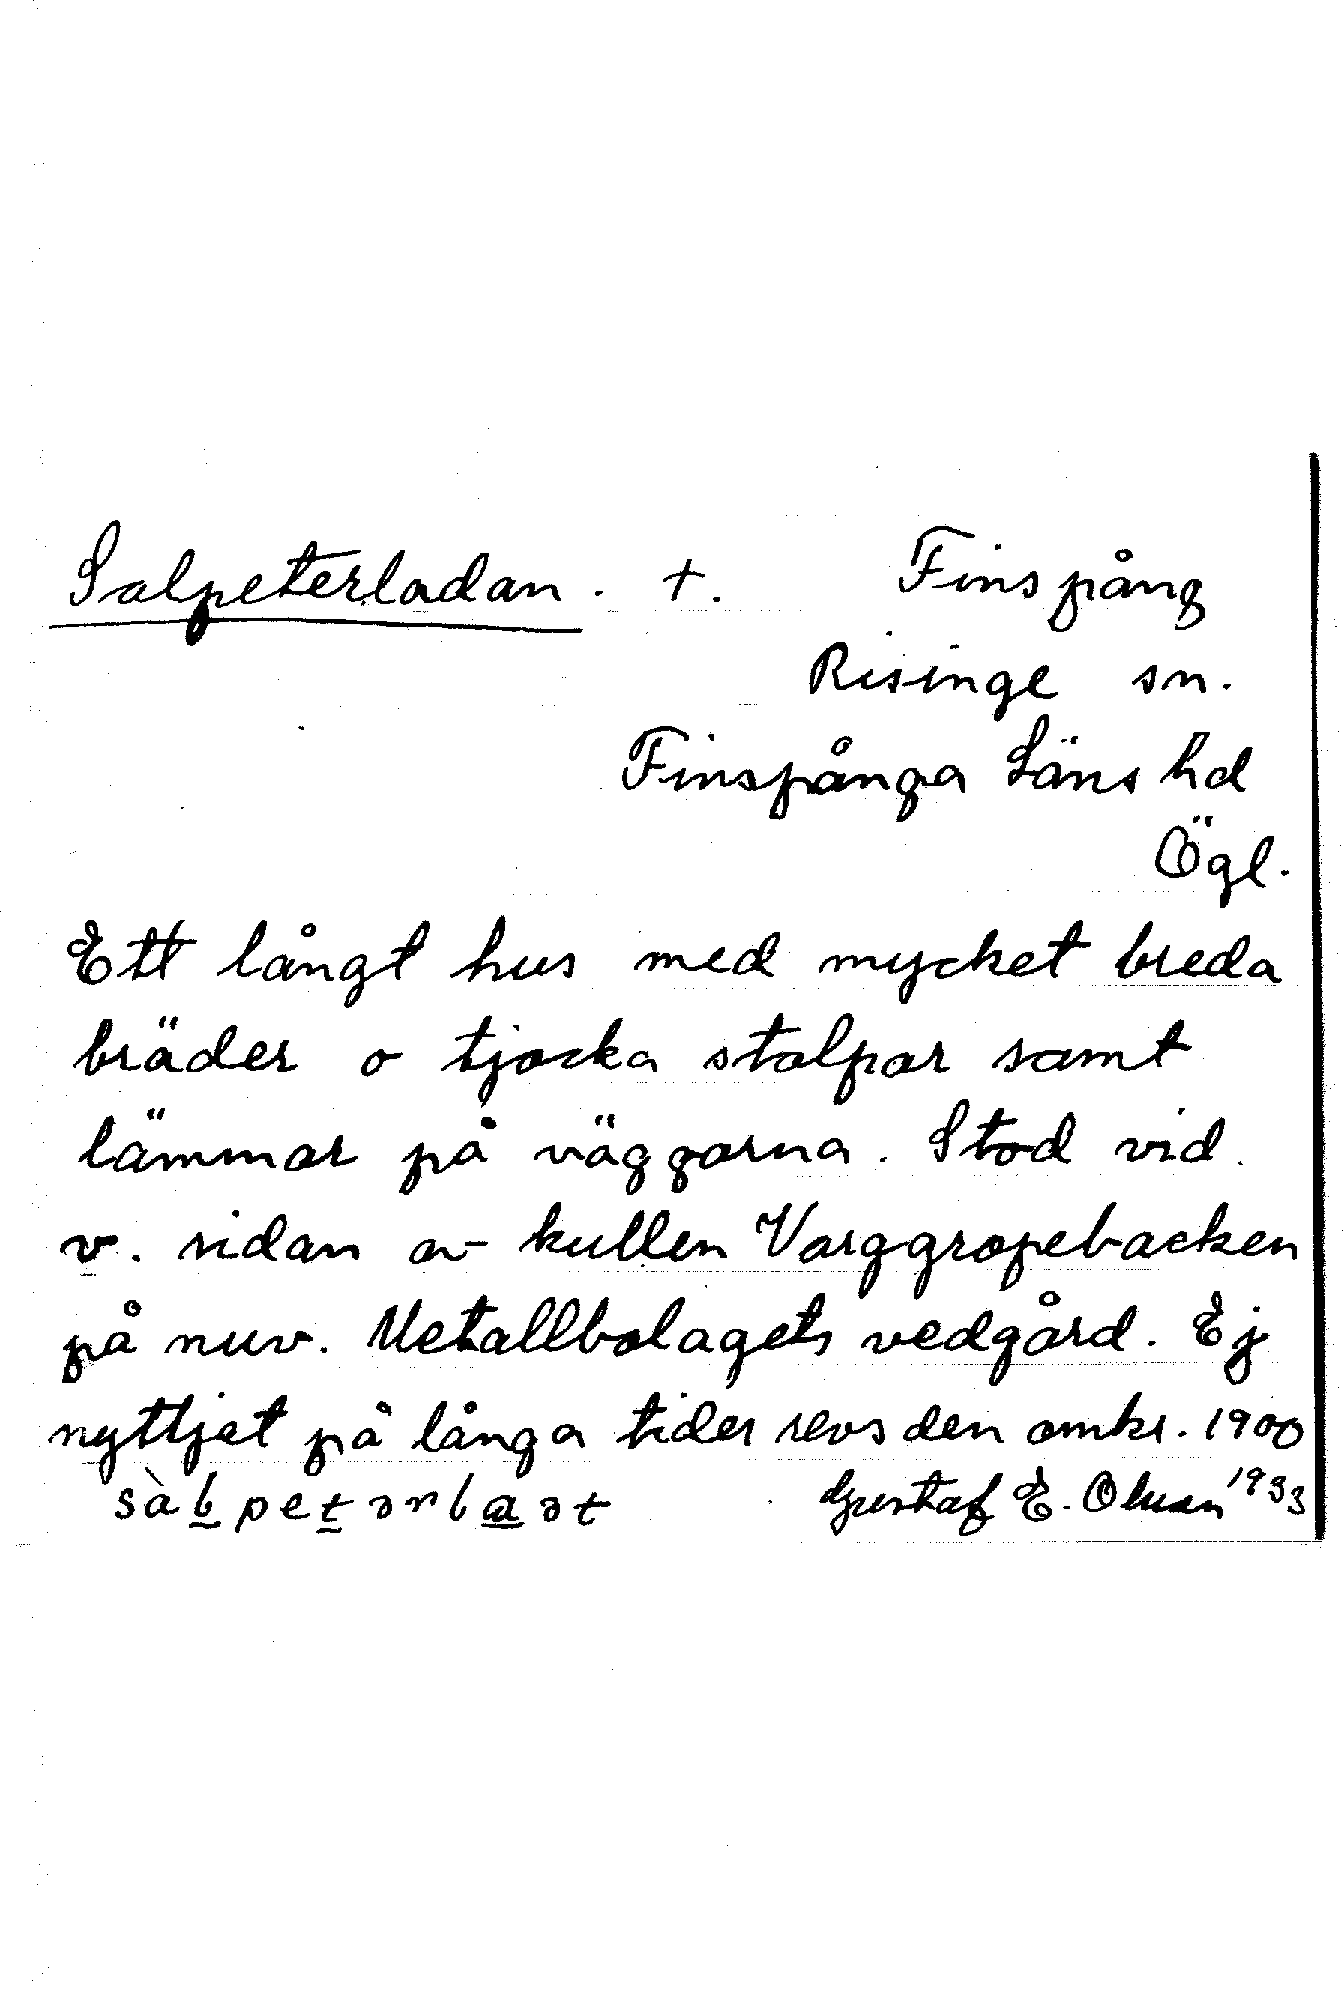 Salpeterladan. +. Finspång
Risinge sn.
Finspånga Läns hd
Ögl.
Ett långt hus med mycket breda
bräder o tjocka stolpar samt
lämmar på väggarna. Stod vid
v. sidan av kullen Varggropebacken
på nuv. Metallbolagets vedgård. Ej
nyttjat på långa tider revs den omkr. 1900
Gustaf E. Olsson 1933